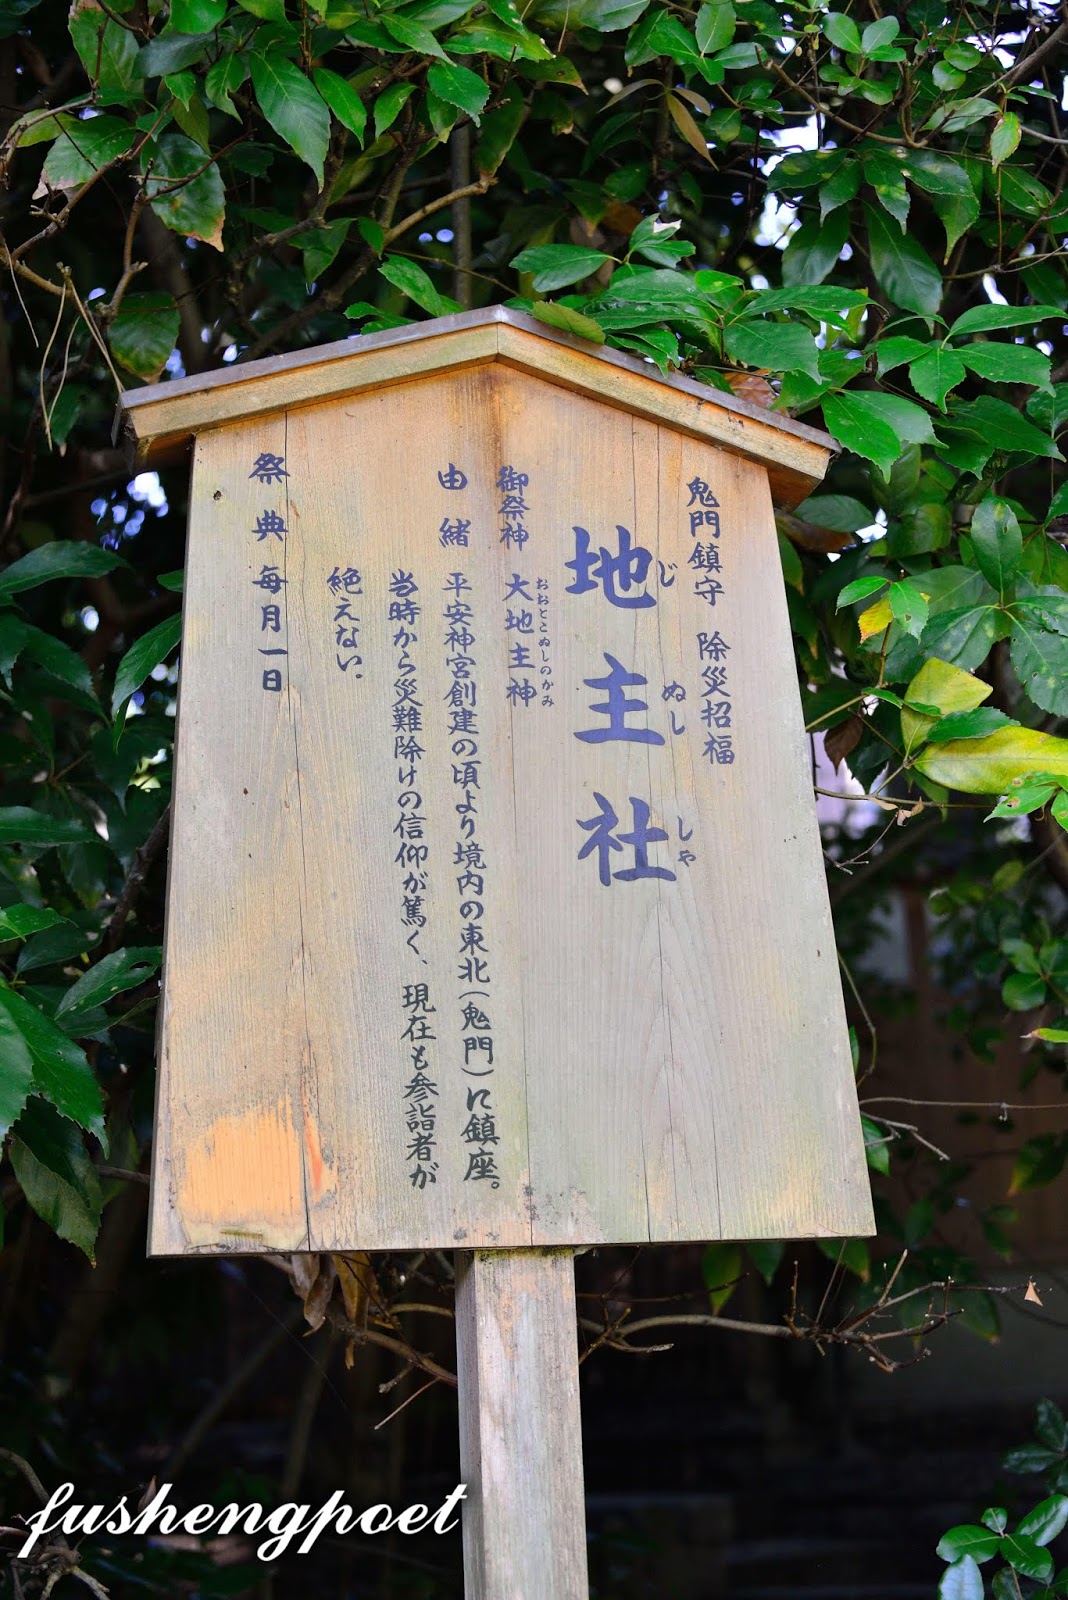 鬼門鎮守　除災招福
じ　ぬし　しゃ
地主社
おおとこぬしのかみ
御祭神　大地主神
由緒　平安神宮創建の頃より境内の東北(鬼門)に鎮座。
当時から災難除けの信仰が篤く、現在も参詣者が
絶えない.
祭典　毎月一日
fushengpoet